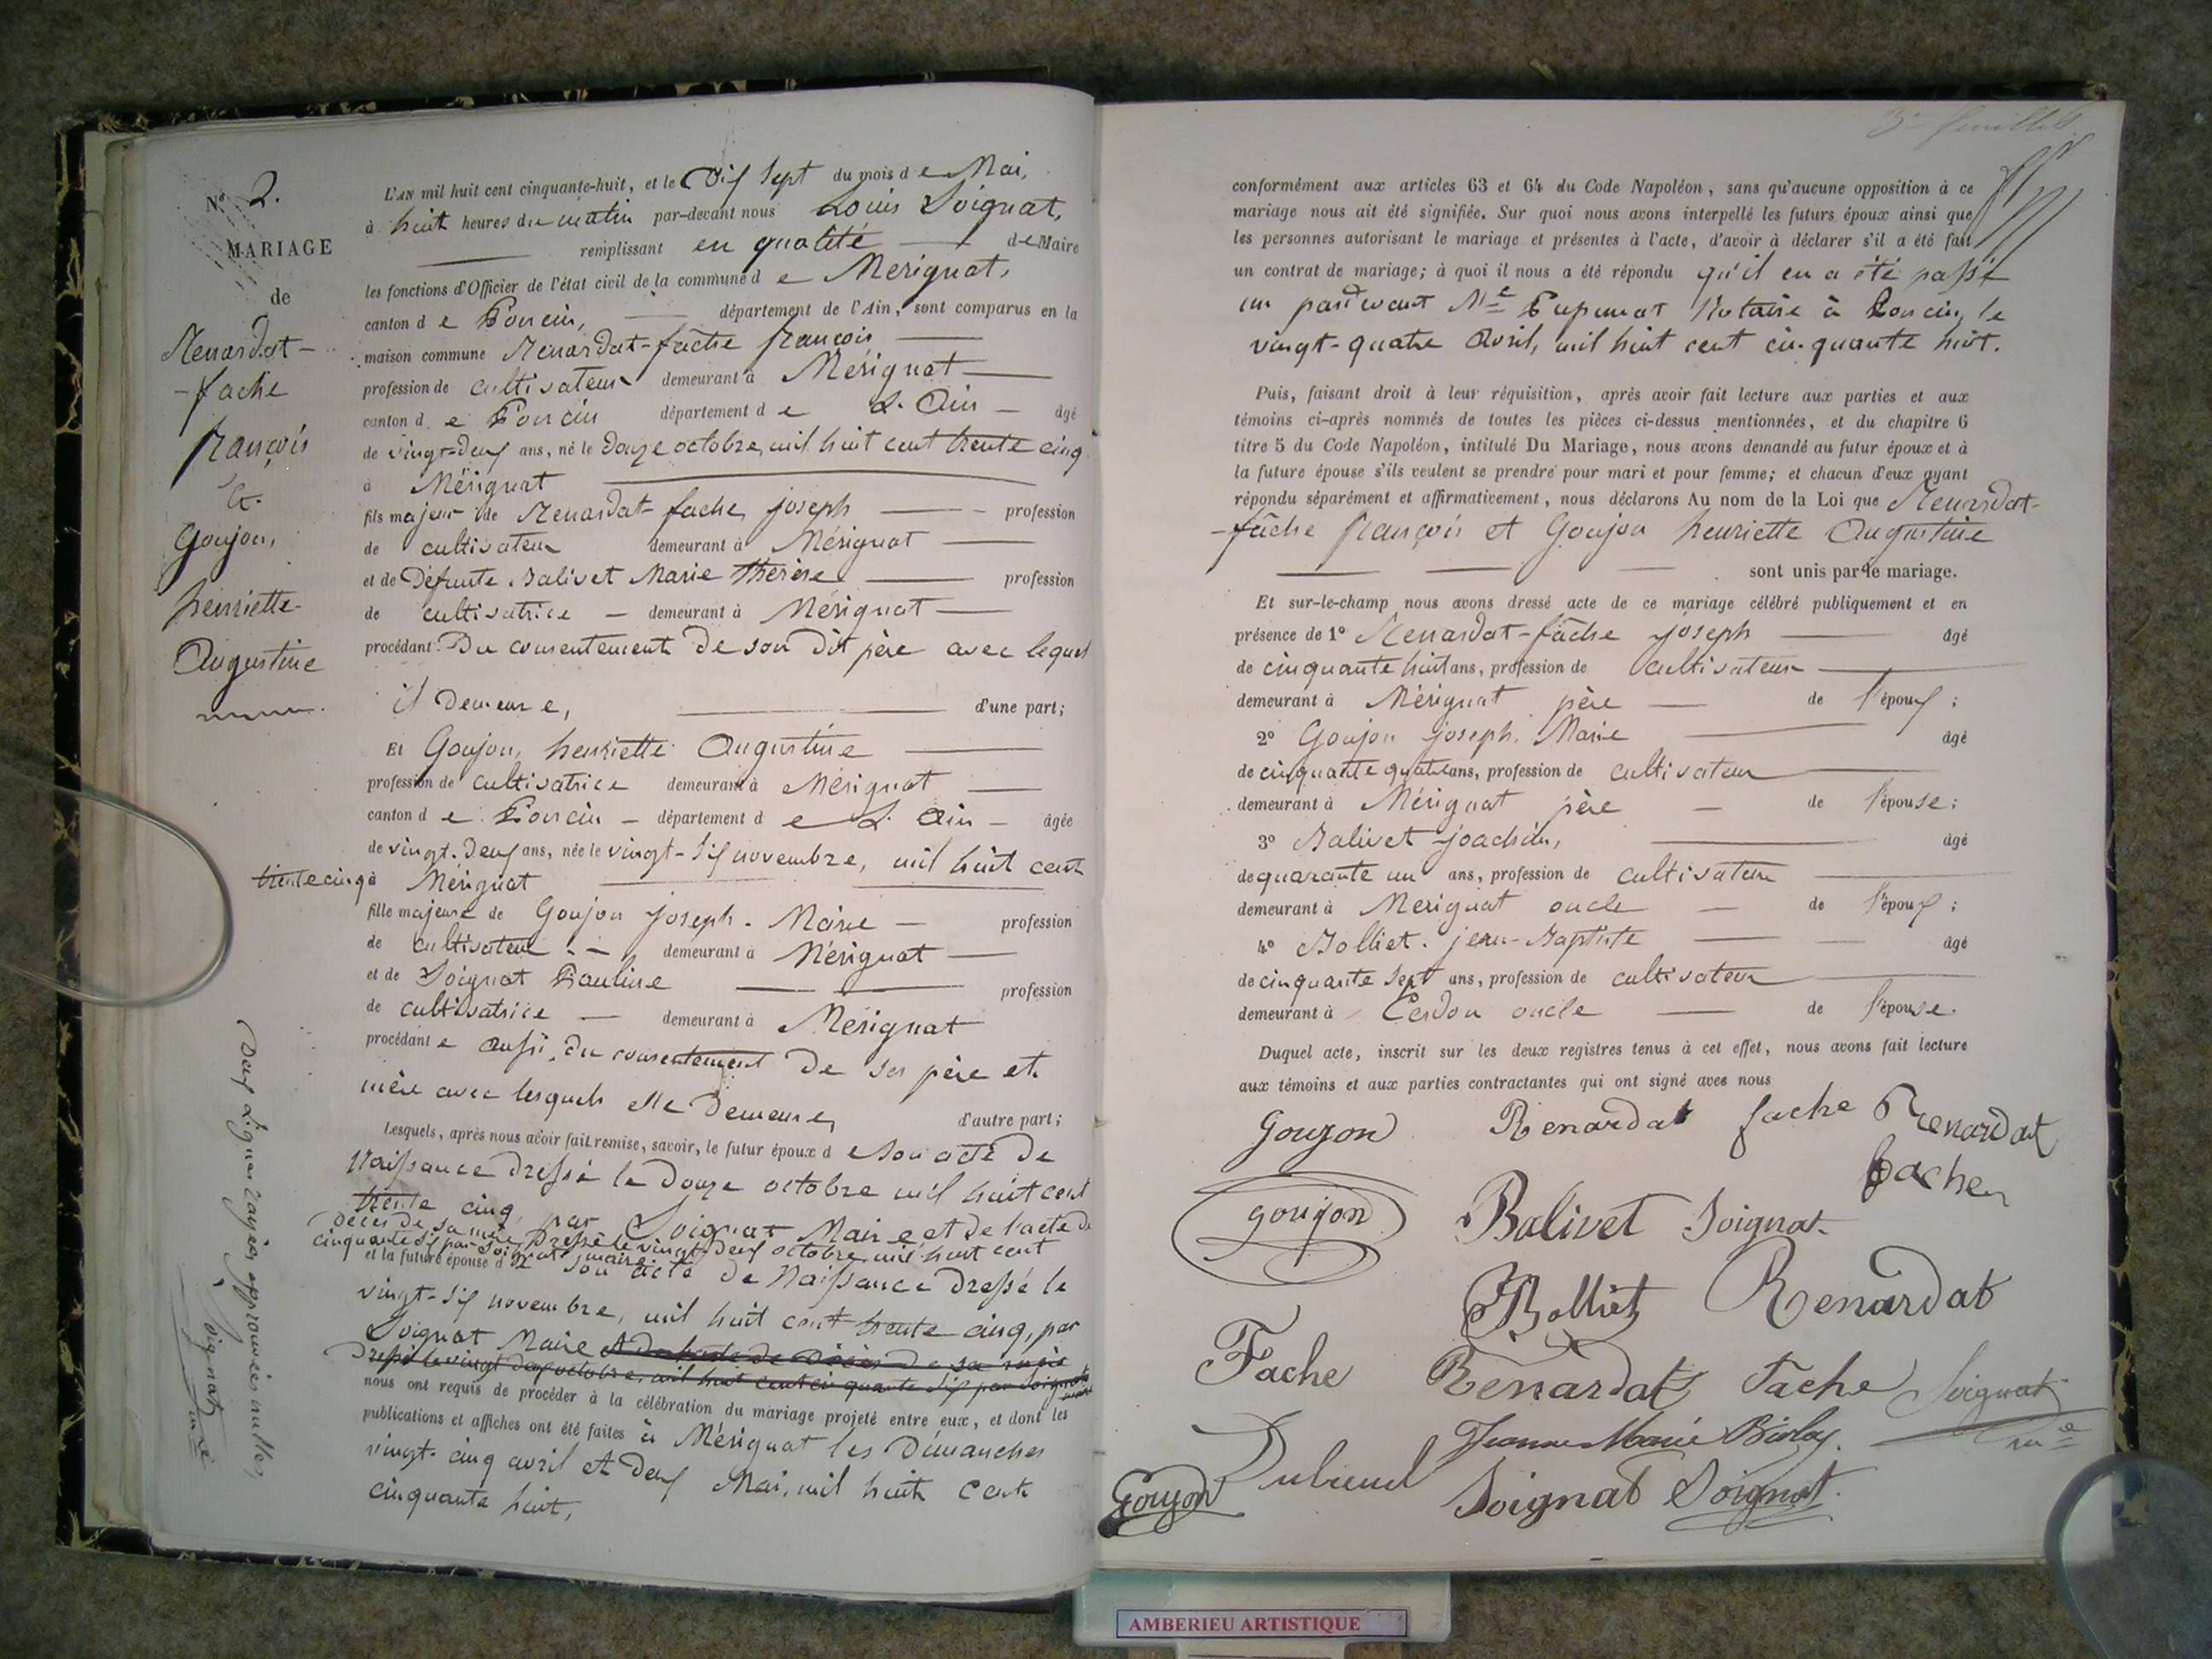 N° 2.
MARIAGE
de
Renardat-
-fache
françois
&.
Goujon,
henriette-
Augustine
L'AN mil huit cent cinquante-huit, et le Dix sept du mois de Mai,
à huit heures du matin par-devant nous Louis Soignat,
remplissant en qualité de Maire
les fonctions d'Officier de l'état civil de la commune de Merignat,
canton de Poncin, département de l'Ain, sont comparus en la
maison commune Renardat-fâche françois
profession de cultivateur demeurant à Mérignat
canton de Poncin département de L'Ain âgé
de vingt-deux ans, né le douze octobre, mil huit cent trente cinq
à Mérignat
fils majeur de Renardat-fache, joseph profession
de cultivateur demeurant à Mérignat
et de Défunte Balivet Marie thérèse profession
de cultivatrice demeurant à Mérignat
procédant Du consentement de son dit père avec lequel
il demeure, d'une part;
Et Goujon, henriette Augustine
profession de cultivatrice demeurant à Mérignat
canton de Poncin département de L'Ain âgée
de vingt-deux ans, née le vingt-six novembre, mil huit cent
trente cinq à Mérignat
fille majeure de Goujon joseph-Marie profession
de cultivateur demeurant à Mérignat
et de Soignat Pauline profession
de cultivatrice demeurant à Mérignat
procédant e aussi, du consentement de ses père et
mère avec lesquels elle demeure, d'autre part;
Lesquels, après nous avoir fait remise, savoir, le futur époux de son acte de
Naissance dressé le douze octobre mil huit cent
trente cinq, par Soignat Maire et de l'acte de
décès de sa mère, Dressé le vingt-deux octobre mil huit cent
cinquante six par Soignat, maire
et la future épouse de son acte de Naissance dressé le
vingt-six novembre, mil huit cent trente cinq, par
Soignat Maire et de l'acte de décès de sa mère
Dressé le vingt deux octobre, mil huit cent cinquante six par Soignat
nous ont requis de procéder à la célébration du mariage projeté entre eux, et dont les
publications et affiches ont été faites à Mérignat les Dimanches
vingt-cinq avril et deux Mai, mil huit cent
cinquante huit,
Deux Lignes rayées approuvées nulles,
Soignat, maire
3e feuillet
conformément aux articles 63 et 64 du Code Napoléon, sans qu'aucune opposition à ce
mariage nous ait été signifiée. Sur quoi nous avons interpellé les futurs époux ainsi que
les personnes autorisant le mariage et présentes à l'acte, d'avoir à déclarer s'il a été fait
un contrat de mariage; à quoi il nous a été répondu qu'il en a été passé
un pardevant Me Notaire à Poncin, le
vingt-quatre Avril, mil huit cent cinquante huit.
Puis, faisant droit à leur réquisition, après avoir fait lecture aux parties et aux
témoins ci-après nommés de toutes les pièces ci-dessus mentionnées, et du chapitre 6
titre 5 du Code Napoléon, intitulé Du Mariage, nous avons demandé au futur époux et à
la future épouse s'ils veulent se prendre pour mari et pour femme; et chacun d'eux ayant
répondu séparément et affirmativement, nous déclarons Au nom de la Loi que Renardat-
-fâche françois et Goujon henriette Augustine
sont unis par le mariage.
Et sur-le-champ nous avons dressé acte de ce mariage célébré publiquement et en
présence de 1° Renardat-fâche joseph âgé
de cinquante huit ans, profession de cultivateur
demeurant à Mérignat père de l'époux;
2° Goujon joseph-Marie âgé
de cinquante quatre ans, profession de cultivateur
demeurant à Mérignat père de l'épouse;
3° Balivet joachim, âgé
de quarante un ans, profession de cultivateur
demeurant à Merignat oncle de l'époux;
4° Bolliet jean-Baptiste âgé
de cinquante sept ans, profession de cultivateur
demeurant à Cerdon oncle de l'épouse.
Duquel acte, inscrit sur les deux registres tenus à cet effet, nous avons fait lecture
aux témoins et aux parties contractantes qui ont signé avec nous
Goujon Renardat fache Renardat
fache
goujon Balivet Soignat
JBolliet Renardat
Fache Renardat Fache Soignat
Jeanne Marie Bolley
Goujon Dubreuil Soignat Soignat
AMBERIEU ARTISTIQUE